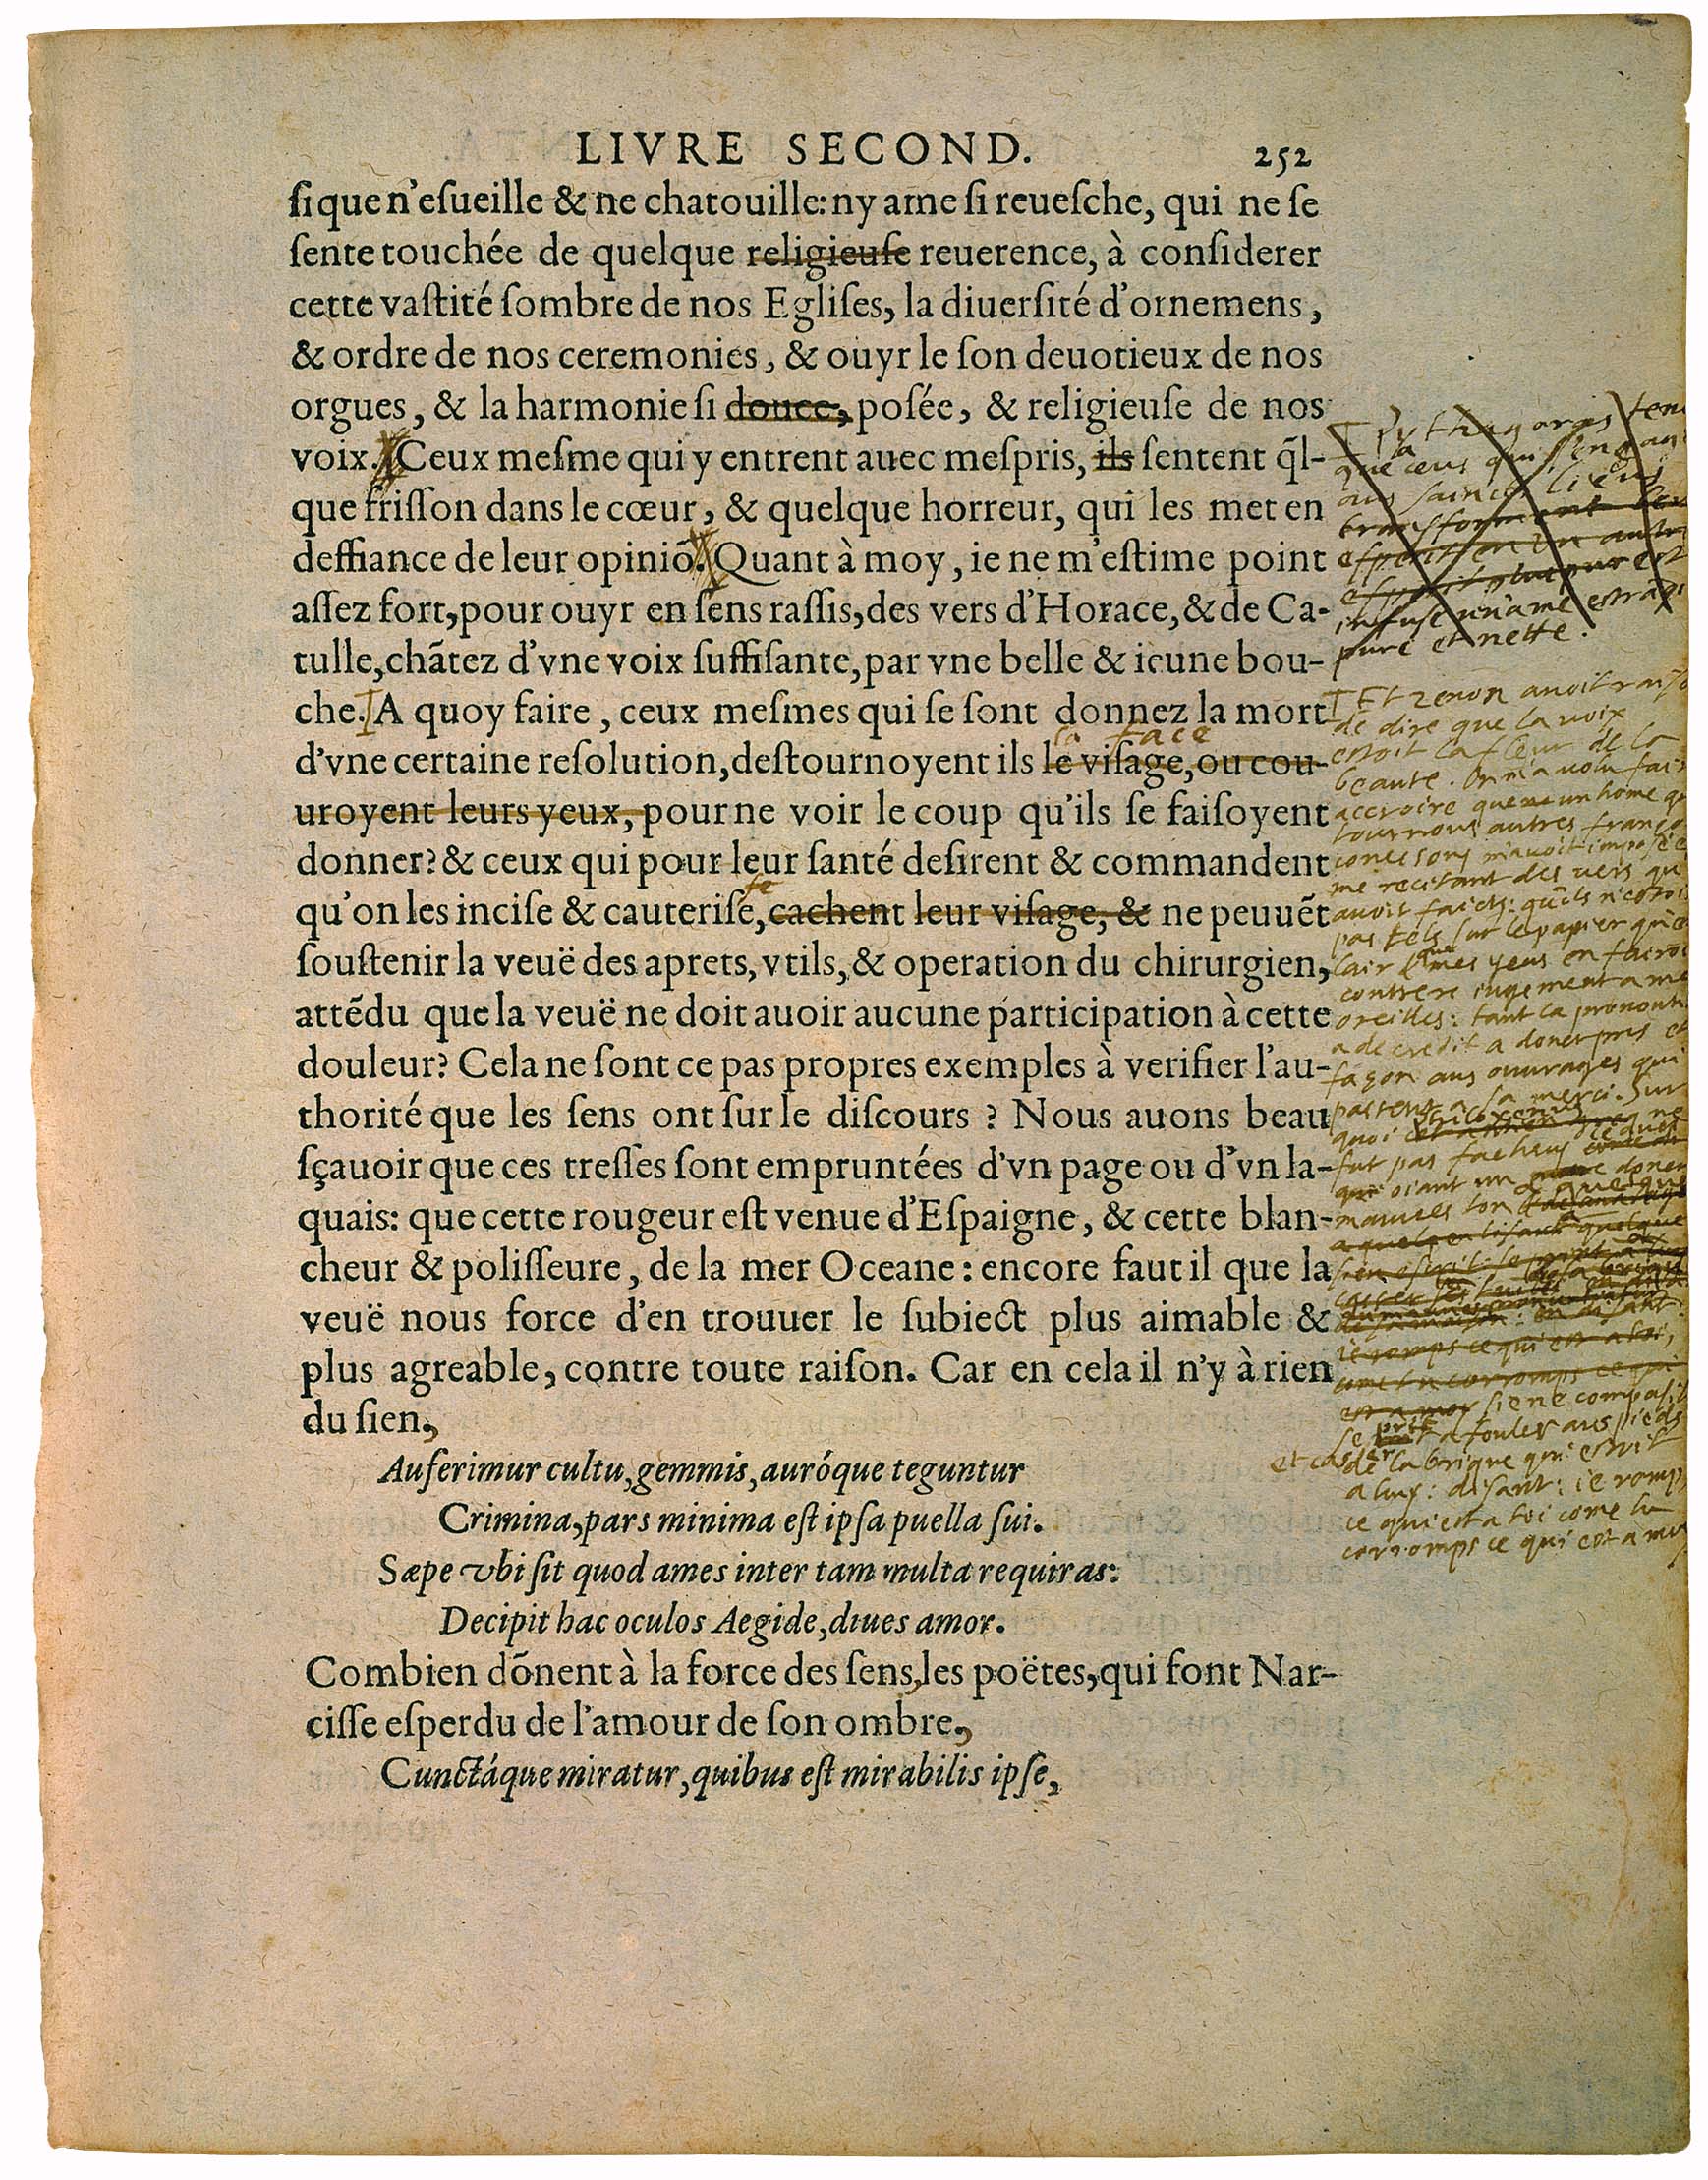 LIVRE SECOND. 252
ſi que n'eſueille & ne chatouille: ny ame ſi reueſche, qui ne ſe
ſente touchée de quelque religieuſe reuerence, à conſiderer
cette vaſtité ſombre de nos Egliſes, la diuerſité d'ornemens,
& ordre de nos ceremonies, & ouyr le ſon deuotieux de nos
orgues, & la harmonie ſi douce, poſée, & religieuſe de nos
voix. Ceux meſme qui y entrent auec meſpris, ils ſentent q̃l-
que friſſon dans le cœur, & quelque horreur, qui les met en
deffiance de leur opiniõ. Quant à moy, ie ne m'eſtime point
aſſez fort, pour ouyr en ſens raſſis, des vers d'Horace, & de Ca-
tulle, chãtez d'vne voix ſuffiſante, par vne belle & ieune bou-
che. A quoy faire, ceux meſmes qui ſe ſont donnez la mort
sa face
d'vne certaine reſolution, deſtournoyent ils le viſage, ou cou-
uroyent leurs yeux, pour ne voir le coup qu'ils ſe faiſoyent
donner? & ceux qui pour leur ſanté deſirent & commandent
qu'on les inciſe & cauteriſe, cachent leur viſage, & ne peuuẽt
ſouſtenir la veuë des aprets, vtils, & operation du chirurgien,
attẽdu que la veuë ne doit auoir aucune participation à cette
douleur? Cela ne ſont ce pas propres exemples à verifier l'au-
thorité que les ſens ont ſur le diſcours ? Nous auons beau
ſçauoir que ces treſſes ſont empruntées d'vn page ou d'vn la-
quais: que cette rougeur eſt venue d'Eſpaigne, & cette blan-
cheur & poliſſeure, de la mer Oceane: encore faut il que la
veuë nous force d'en trouuer le ſubiect plus aimable &
plus agreable, contre toute raiſon. Car en cela il n'y à rien
du ſien,
Auferimur cultu, gemmis, auróque teguntur
Crimina, pars minima eſt ipſa puella ſui.
Sæpe vbi ſit quod ames inter tam multa requiras:
Decipit hac oculos Aegide, diues amor.
Combien dõnent à la force des ſens, les poëtes, qui font Nar-
ciſſe eſperdu de l'amour de ſon ombre,
Cunctáque miratur, quibus eſt mirabilis ipſe,
Pythagoras
que ceus qui
aus saincts lieus
transforment
infuse un'ame
pure et nette.
Et zenon avoit
de dire que la voix
estoit la fleur de la
beaute. On m'a volu
accroire que un home
tous nous autres
m'avoit impose
me recitant des vers
avoit faicts: qu'ils
pas tels sur le papier qu'en
l'air & que mes yeus en
contrere iugement a
oreilles: tant la
a de credit a doner pris et
façon aus ouvrages qui
passent a sa merci. Sur
quoi Philoxenus ne
fut pas facheus
oiant un doner
mauves ton a quelque
siene
se prit a fouler aus pieds
et casser de la brique qui estoit
a luy: disant: ie romps
ce qui est a toi come tu
corromps ce qui est a moy